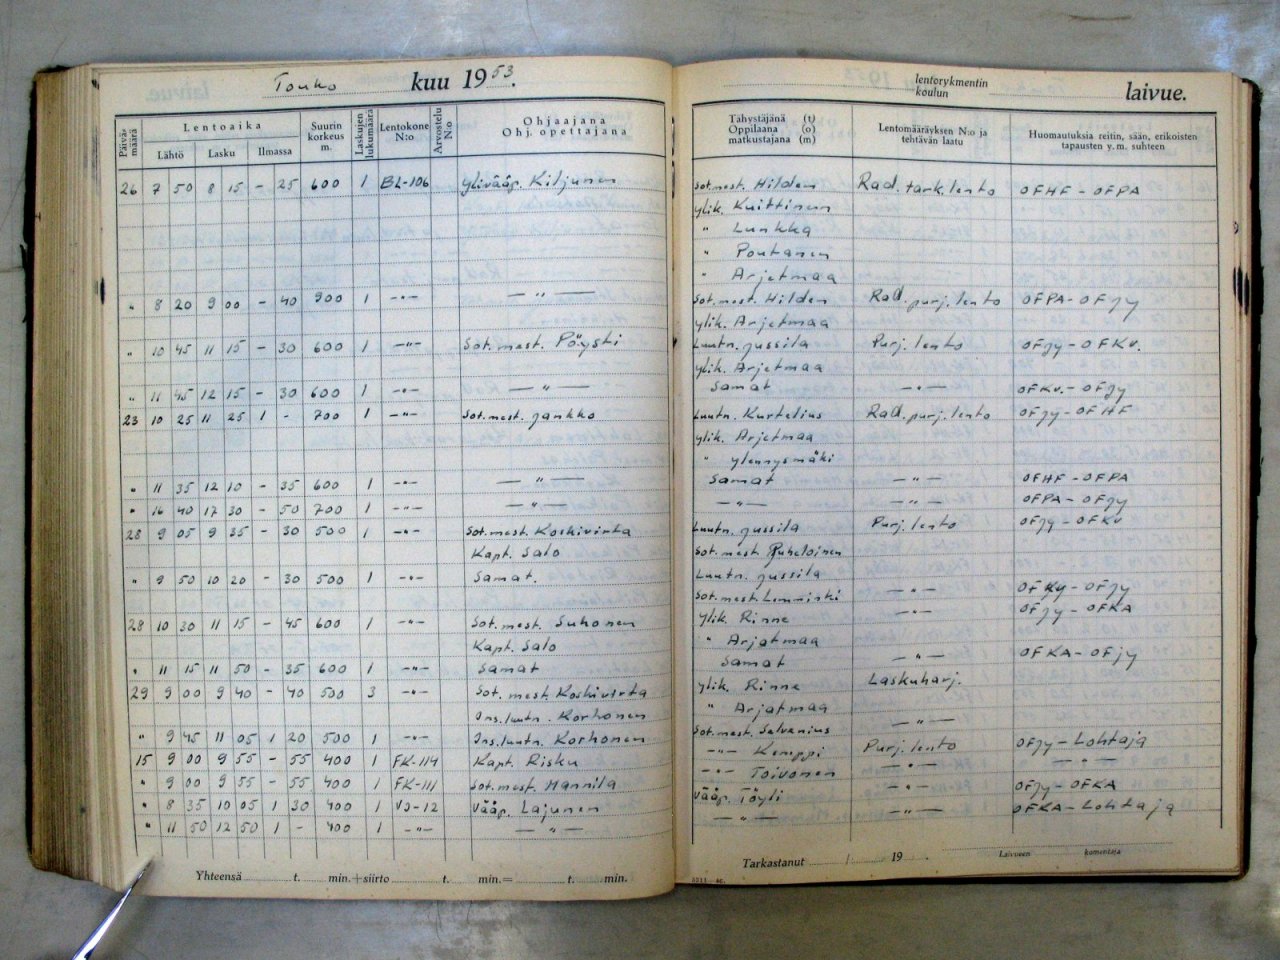 Touko kuu 1953.
Päivä- määrä
Lentoaika
Lähtö Lasku Ilmassa
Suurin korkeus m.
Laskujen lukumäärä
Lentokone N:o
Arvostelu N:o
Ohjaajana
Oh. opettajana
26 7 50 8 15 - 25 600 1 BL-106 Ylivääp. Kiljunen
" 8 20 9 00 - 40 900 1 -"- — " —
" 10 45 11 15 - 30 600 1 -"- Sot.mest. Pöysti
" 11 45 12 15 - 30 600 1 -"- — " —
23 10 25 11 25 1 - 700 1 -"- Sot.mest. Jankko
" 11 35 12 10 - 35 600 1 -"- — " —
" 16 40 17 30 - 50 700 1 -"- — " —
28 9 05 9 35 - 30 500 1 -"- Sot.mest. Koskivirta
Kapt. Salo
" 9 50 10 20 - 30 500 1 -"- Samat.
28 10 30 11 15 - 45 600 1 -"- Sot.mest. Suhonen
Kapt. Salo
" 11 15 11 50 - 35 600 1 -"- Samat
29 9 00 9 40 - 40 500 3 -"- Sot.mest. Koskivirta
Ins.luutn. Korhonen
" 9 45 11 05 1 20 500 1 -"- Ins.luutn. Korhonen
15 9 00 9 55 - 55 400 1 FK-114 Kapt. Risku
" 9 00 9 55 - 55 400 1 FK-111 Sot.mest. Mannila
" 8 35 10 05 1 30 400 1 VJ-12 Vääp. Lajunen
" 11 50 12 50 1 - 400 1 -"- — " —
Yhteensä t. min.+siirto t. min.= t. min.
lentorykmentin
koulun
laivue.
Tähystäjänä (t)
Oppilaana (o)
matkustajana (m)
Lentomääräyksen N:o ja
tehtävän laatu
Huomautuksia reitin, sään, erikoisten
tapausten y. m. suhteen
Sot.mest. Hilden Rad. tark. lento OFHF - OFPA
Ylik. Kuittinen
" Lunkka
" Poutanen
" Arjetmaa
Sot.mest. Hilden Rad. purj. lento OFPA - OFJY
Ylik. Arjetmaa
Luutn. Jussila Purj. lento OFJY - OFKV.
Ylik. Arjetmaa
Samat -"- OFKV. - OFJY
Luutn. Kurtelius Rad. purj. lento OFJY - OFHF
Ylik. Arjetmaa
" Ylennysmäki
Samat -"- OFHF - OFPA
-"- -"- OFPA - OFJY
Luutn. Jussila Purj. lento OFJY - OFKV
Sot.mest. Puheloinen
Luutn. Jussila
Sot.mest. Lemminki -"- OFKV - OFJY
Ylik. Rinne -"- OFJY - OFKA
" Arjatmaa
Samat -"- OFKA - OFJY
Ylik. Rinne Laskuharj.
" Arjatmaa
Sot.mest. Selvenius -"-
-"- Kemppi Purj. lento OFJY - Lohtaja
-"- Toivonen -"- -"-
Vääp. Töyli -"- OFJY - OFKA
-"- -"- OFKA - Lohtaja
Tarkastanut / 19 .
Laivueen komentaja